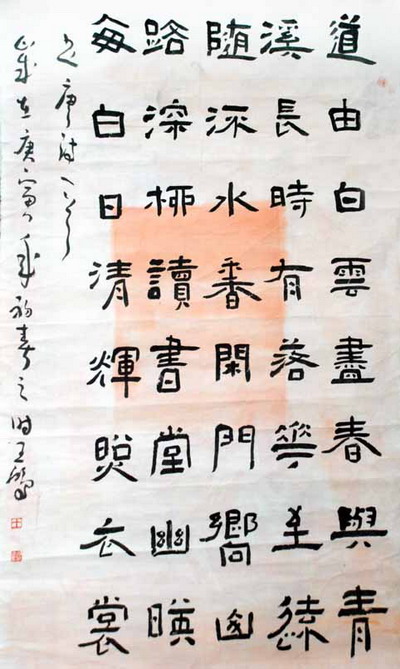 道由白雲盡春與青
溪長時有落華至遠
隨流水香閑門嚮山
路深柳讀書堂幽暎
每白日清輝照衣裳
录唐詩一首
歲在庚寅年初春之時王
王